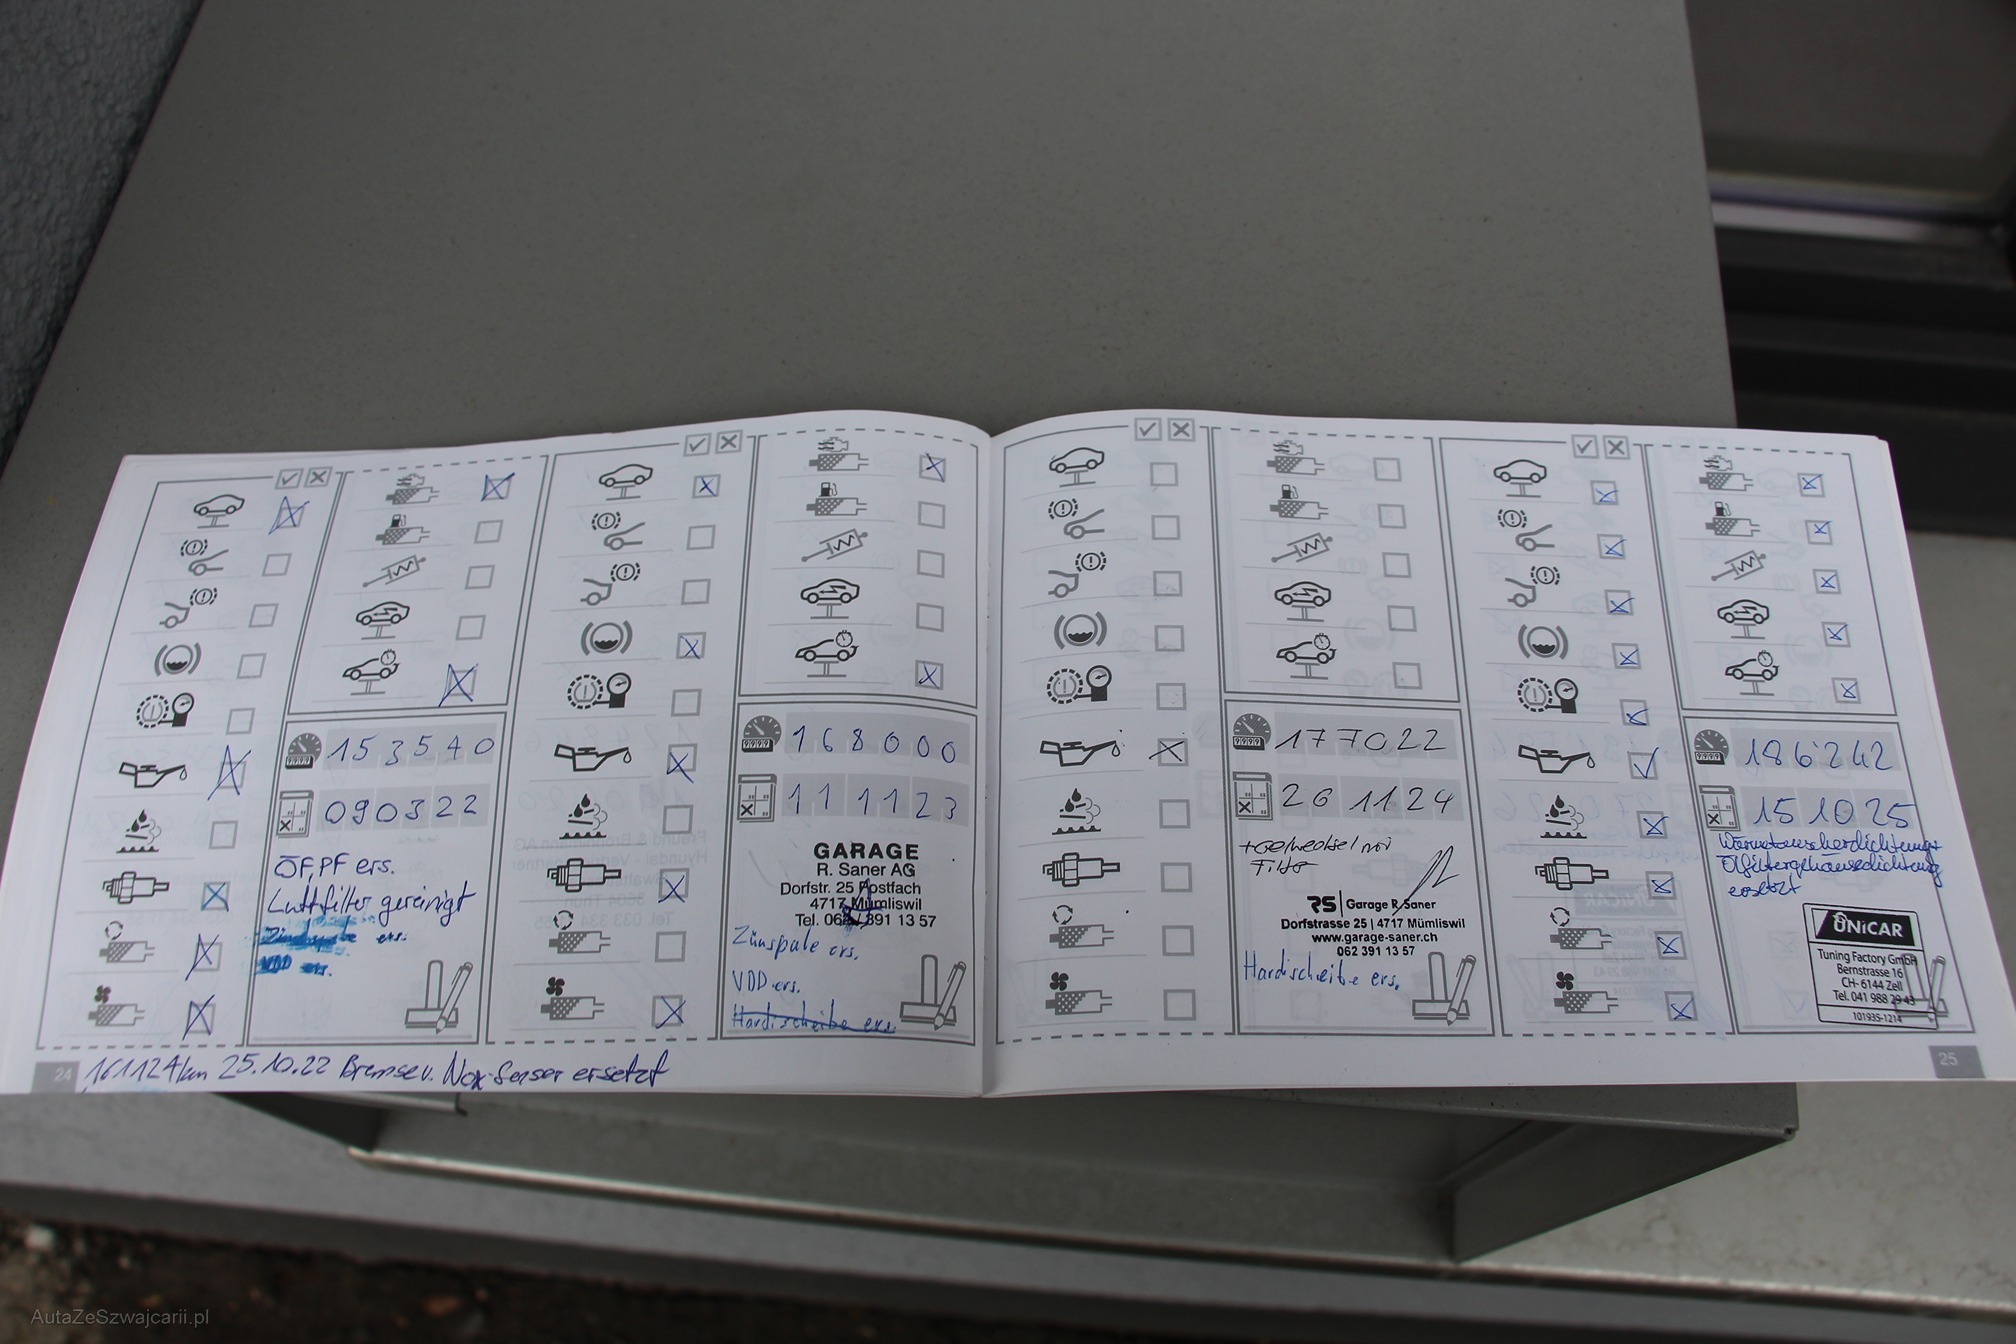 153540
090322
ÖF, PF ers.
Luftfilter gereinigt
ers.
VDD ers.
168000
11 11 23
GARAGE
R. Saner AG
Dorfstr. 25 Postfach
4717 Mümliswil
Tel. 062 / 391 13 57
Zünspule ers.
VDD ers.
Hardischeibe ers.
24 161124km 25.10.22 Bremsev. Nox-Sensor ersetzt
177022
26 11 24
Filter
RS | Garage R. Saner
Dorfstrasse 25 | 4717 Mümliswil
www.garage-saner.ch
062 391 13 57
Hardischeibe ers.
186242
15 10 25
Ölfiltergehäusedichtung
ersetzt
UNiCAR
Tuning Factory GmbH
Bernstrasse 16
CH- 6144 Zell
Tel. 041 988 29 43
101935-1214
25
AutaZeSzwajcarii.pl